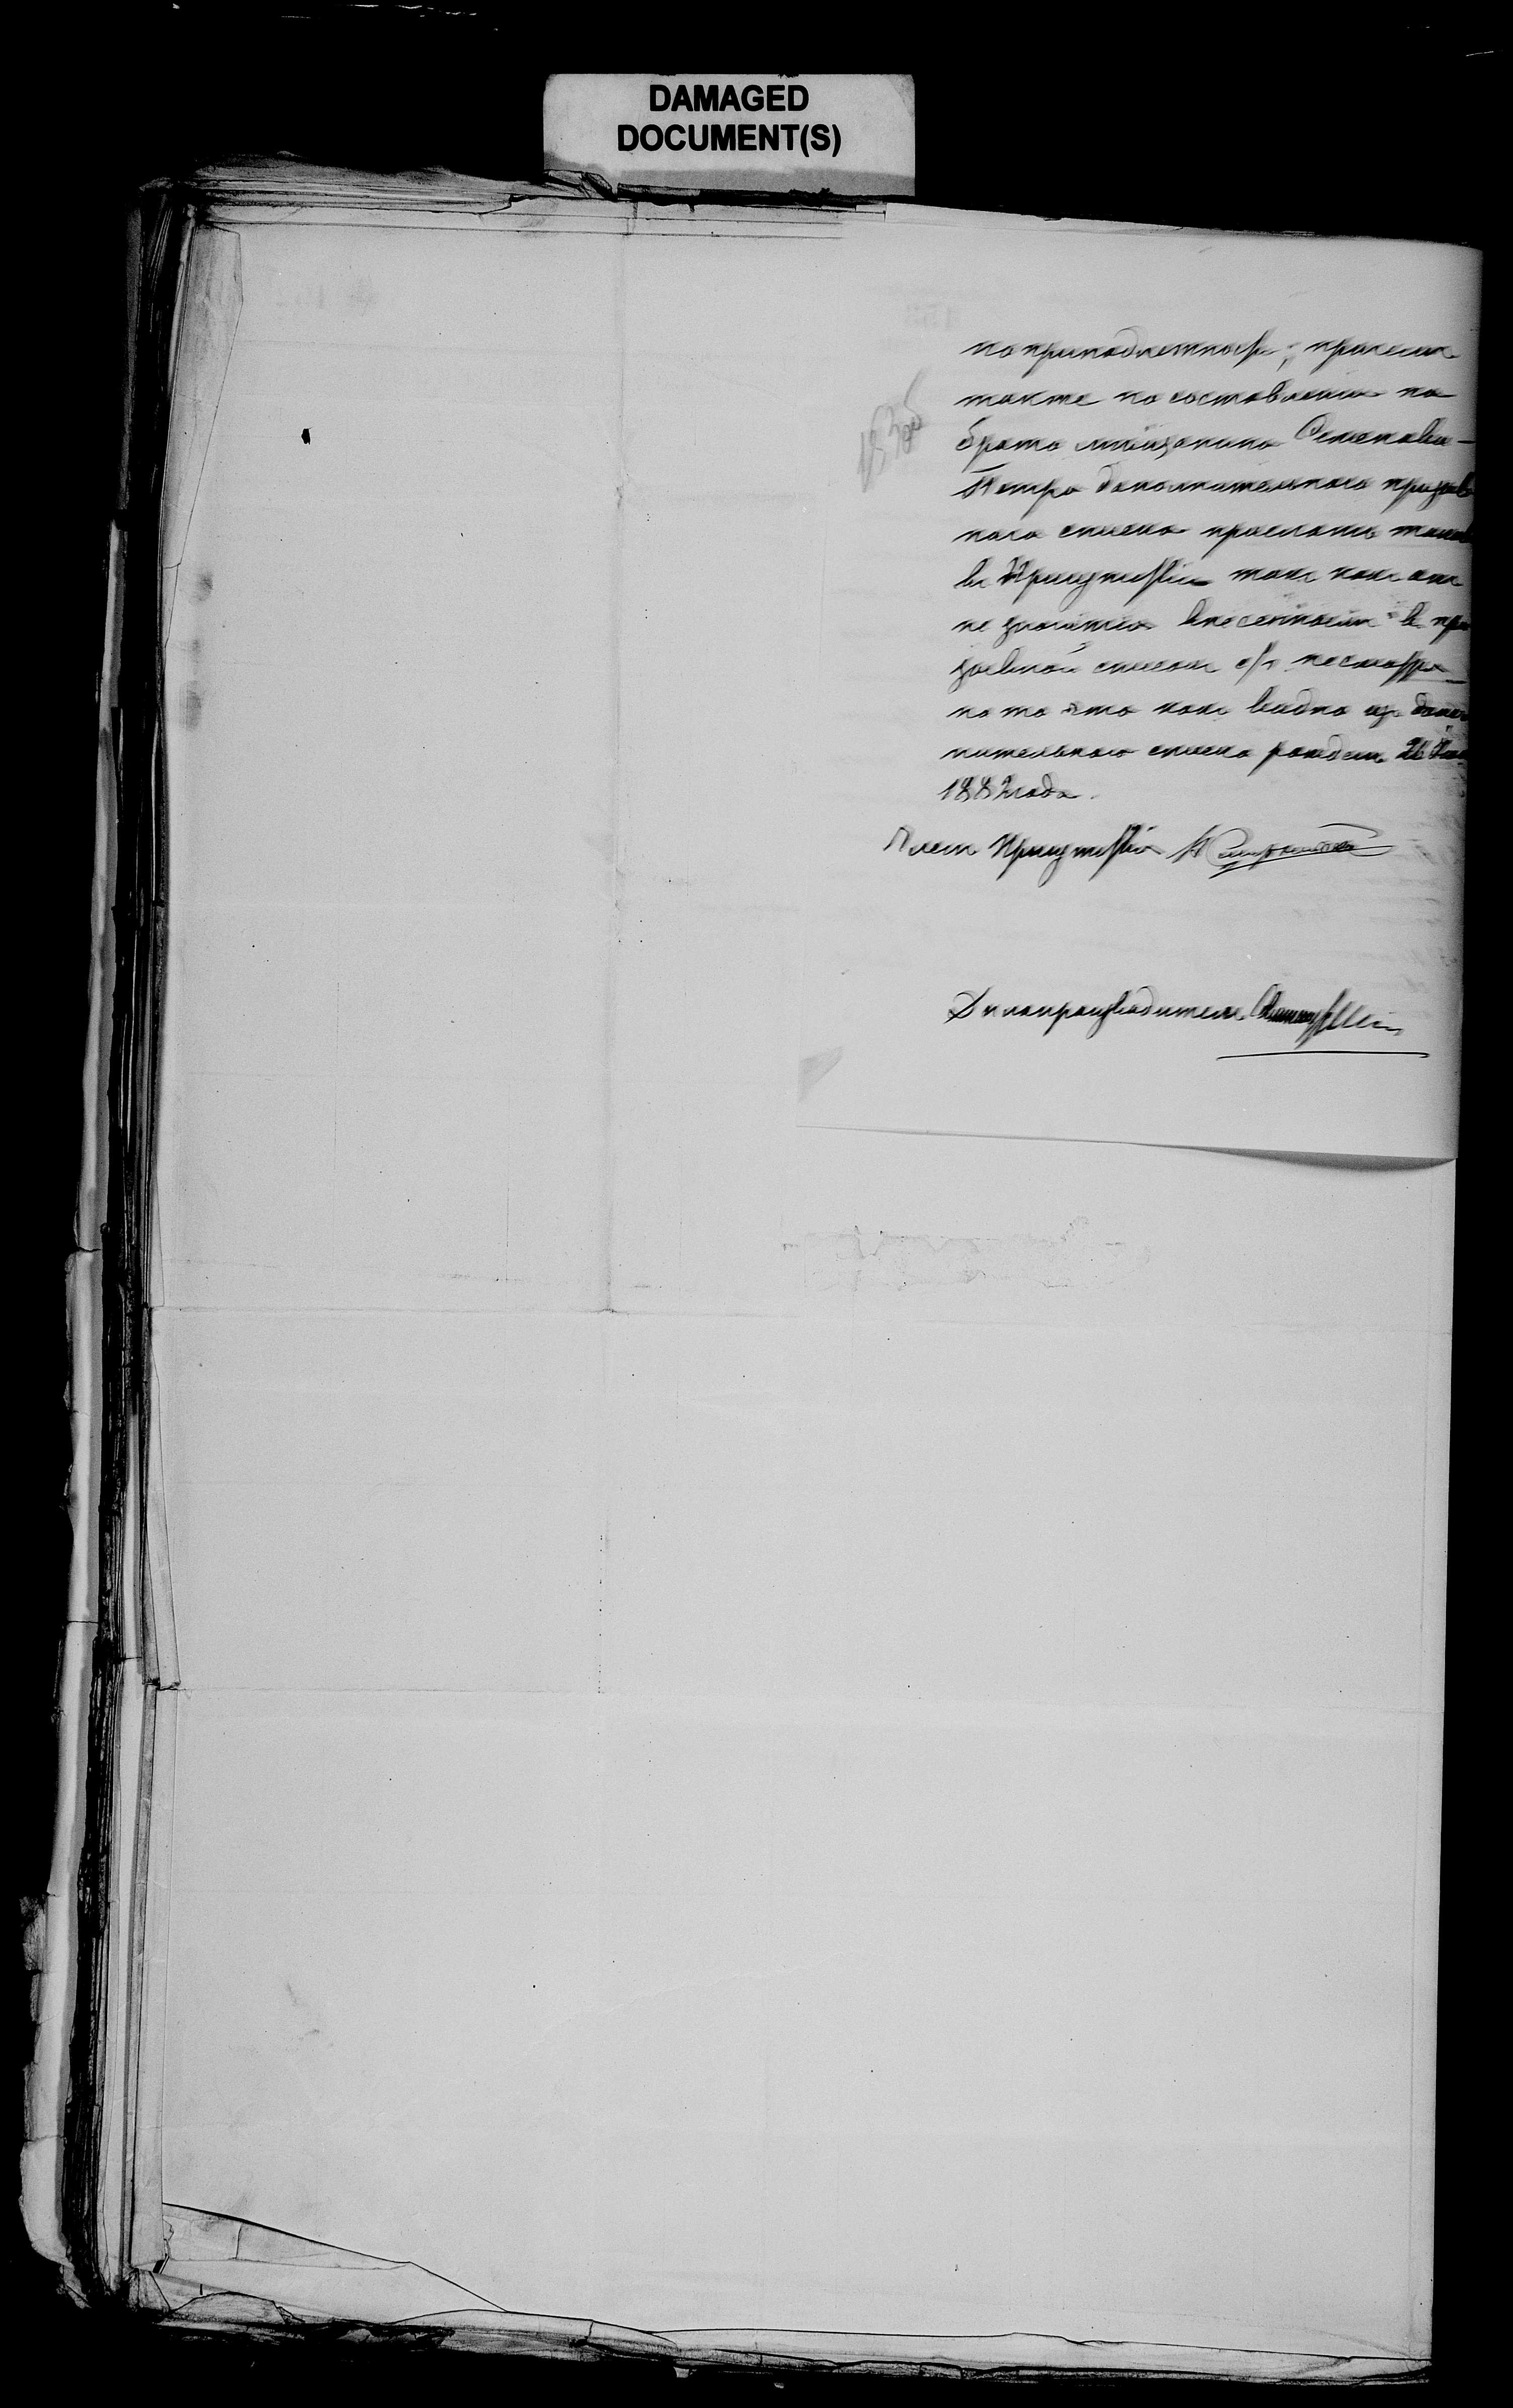 DAMAGED
DOCUMENT(S)
по принадлежности; просит
также по составлении на
брата мѣщанина Семенова
Петра дополнительнаго призыв
наго списка прислать таков
въ Присутствіе такъ какъ онъ
не значится внесеннымъ въ при
зывной списокъ с/г несмотря
на то что какъ видно изъ допол
нительнаго списка родился 26
1882 года.
Членъ Присутствія
Дѣлопроизводитель